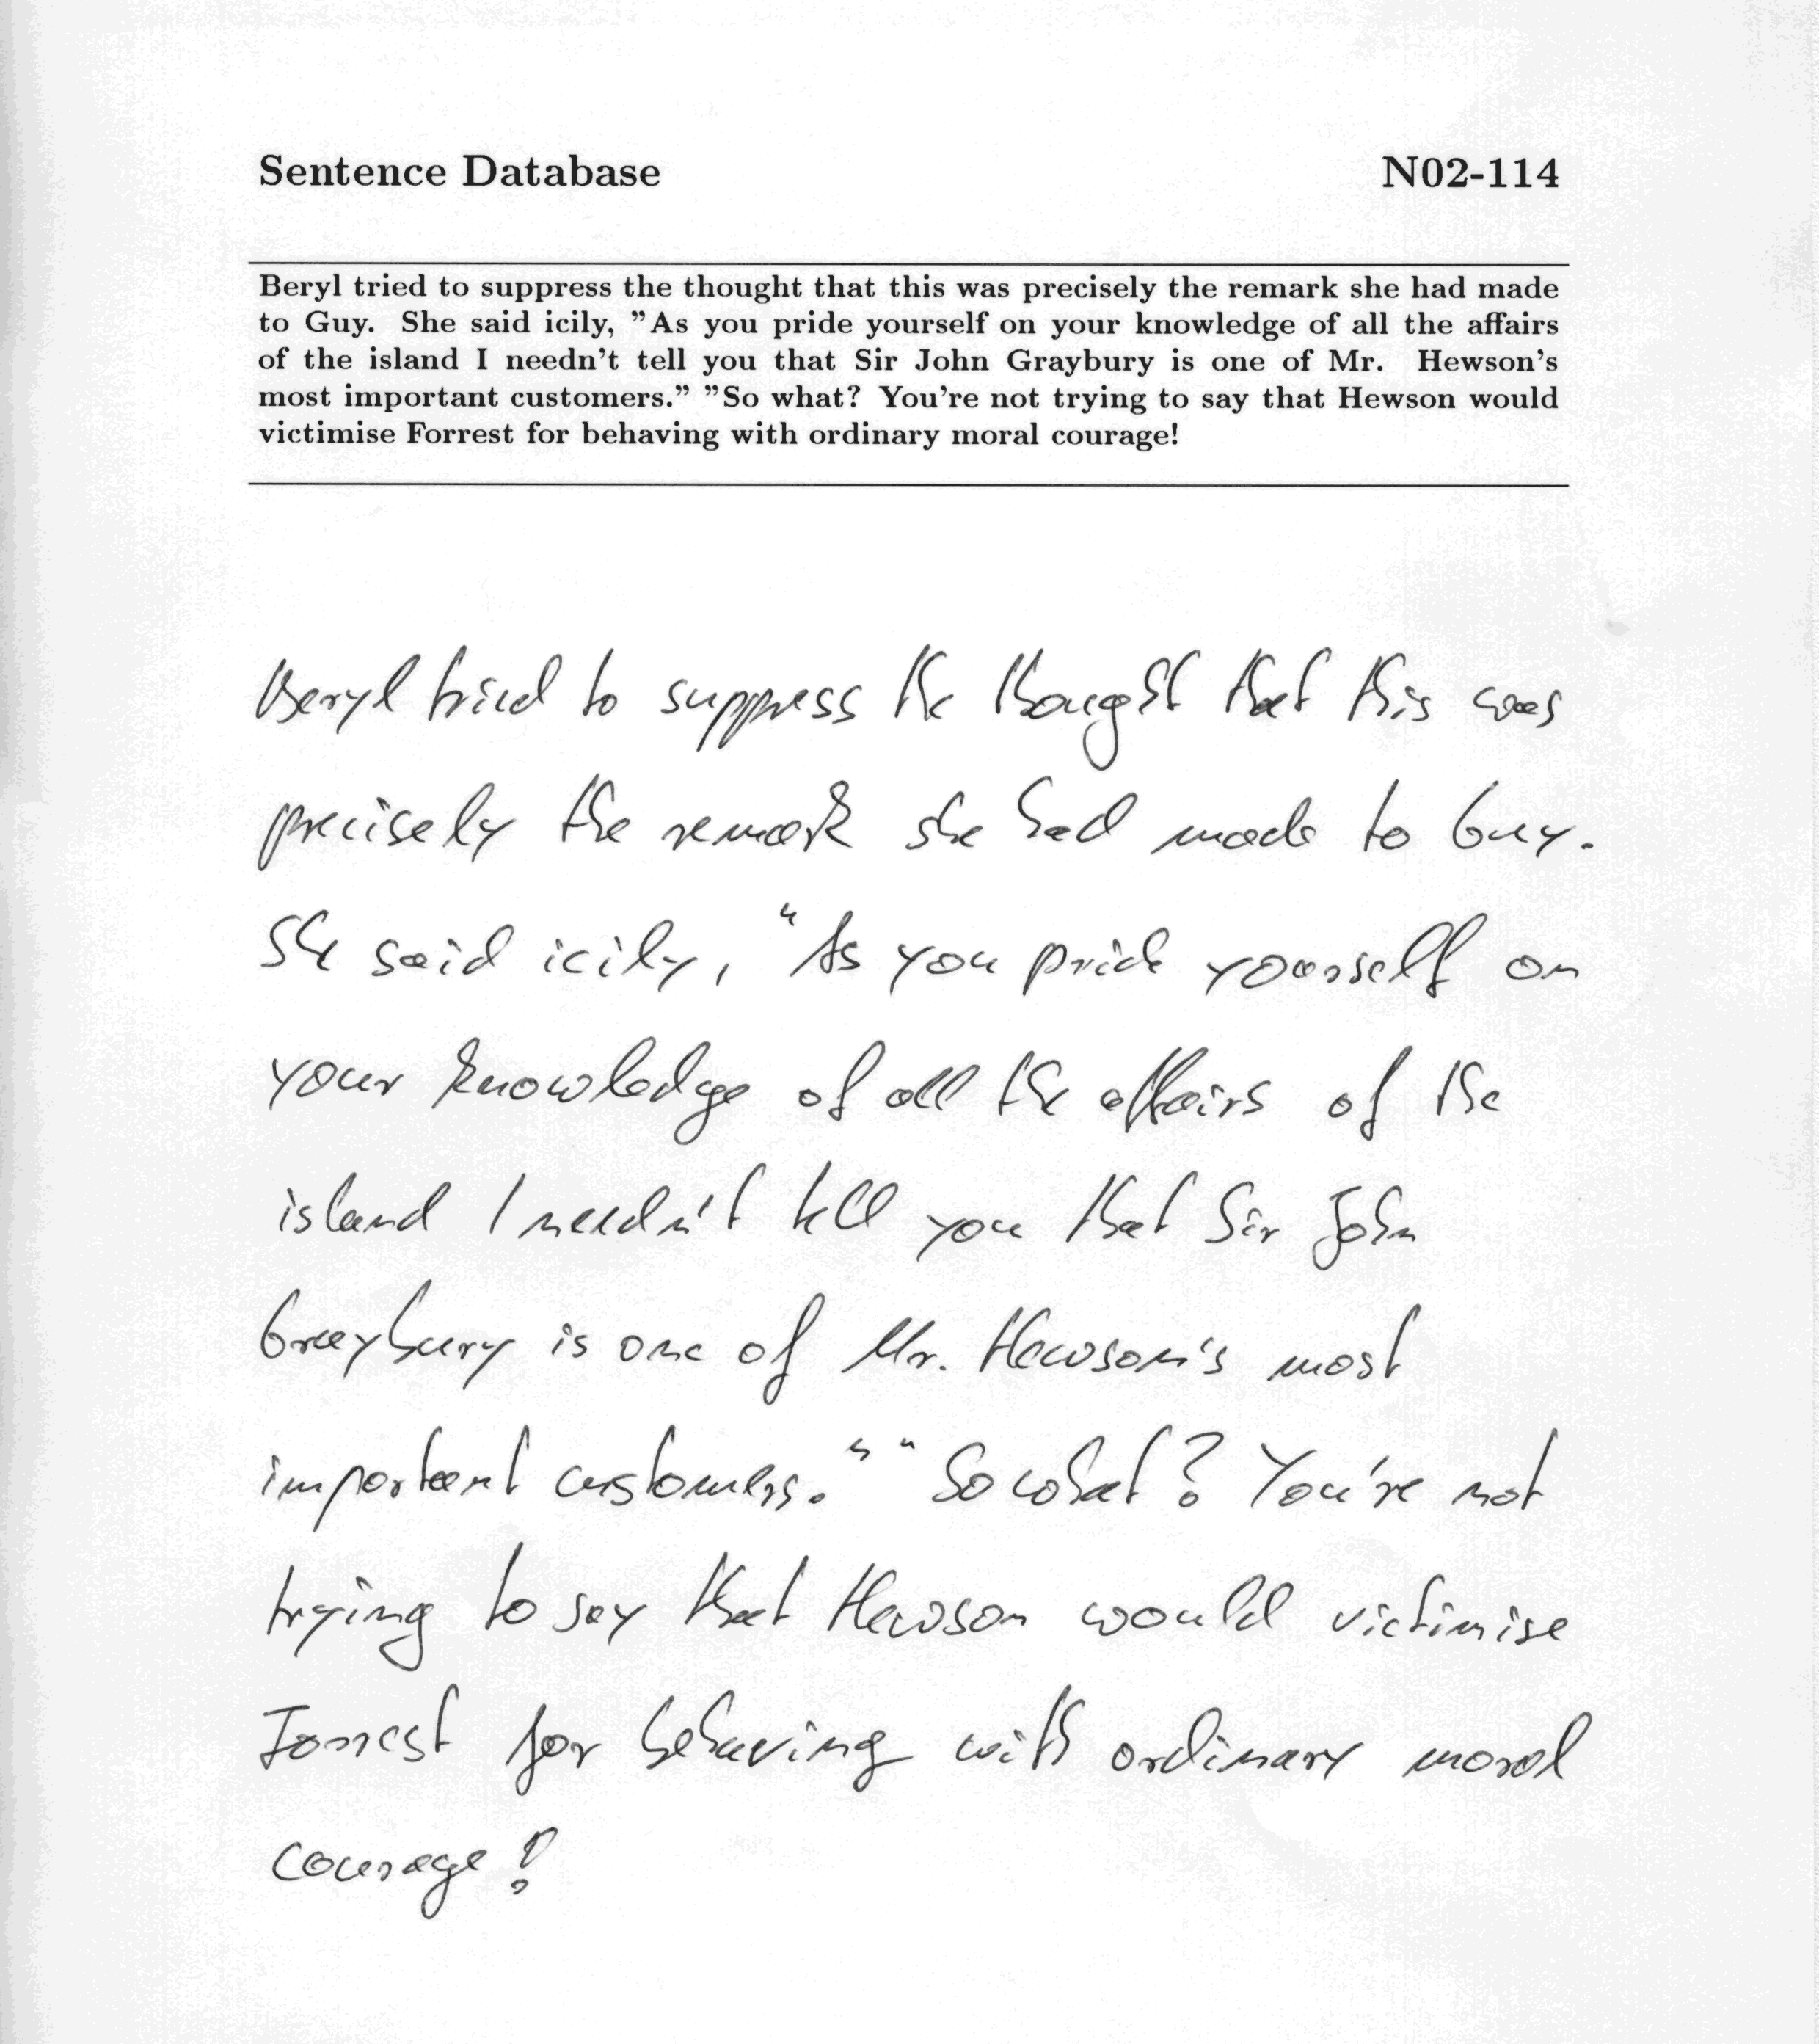 Sentence Database N02-114
Beryl tried to suppress the thought that this was precisely the remark she had made
to Guy. She said icily, ”As you pride yourself on your knowledge of all the affairs
of the island I needn’t tell you that Sir John Graybury is one of Mr. Hewson’s
most important customers.” ”So what? You’re not trying to say that Hewson would
victimise Forrest for behaving with ordinary moral courage!
Beryl tried to suppress the thought that this was
precisely the remark she had made to Guy.
She said icily, "As you pride yourself on
your knowledge of all the affairs of the
island I needn't tell you that Sir John
Graybury is one of Mr. Hewson's most
important customers." "So what? You're not
trying to say that Hewson would victimise
Forrest for behaving with ordinary moral
courage!